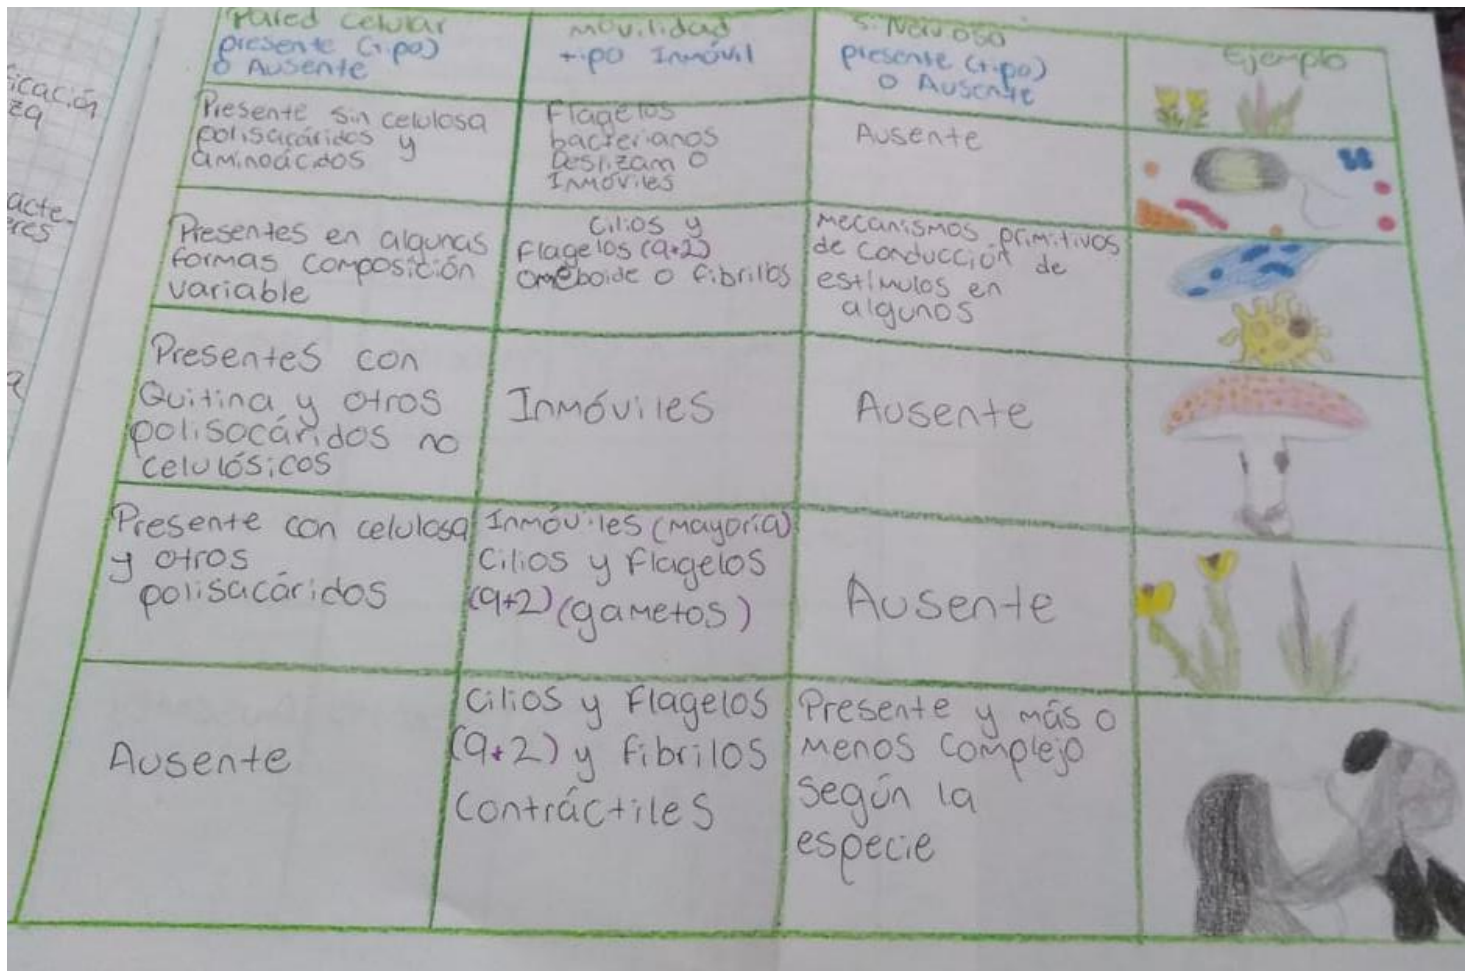 icación
za
acte-
res
a
Pared celular
presente (tipo)
o Ausente
Movilidad
tipo Inmóvil
S. Nervoso
presente (tipo)
o Ausente
Ejemplo
Presente sin celulosa
polisacáridos y
aminoácidos
Flagelos
bacterianos
Deslizam o
Inmóviles
Ausente
Presentes en algunas
formas composición
variable
Cilios y
Flagelos (9+2)
ameboide o fibrillos
Mecanismos primitivos
de conducción de
estímulos en
algunos
Presentes con
Quitina y otros
polisocáridos no
celulósicos
Inmóviles
Ausente
Presente con celulosa
y otros
polisacáridos
Inmóviles (mayoría)
Cilios y Flagelos
(9+2) (gametos)
Ausente
Ausente
Cilios y Flagelos
(9+2) y fibrilos
contráctiles
Presente y más o
menos complejo
según la
especie